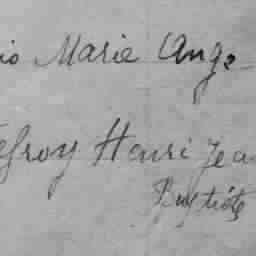 io Marie Ange
efroy Henri Jea
Baptiste